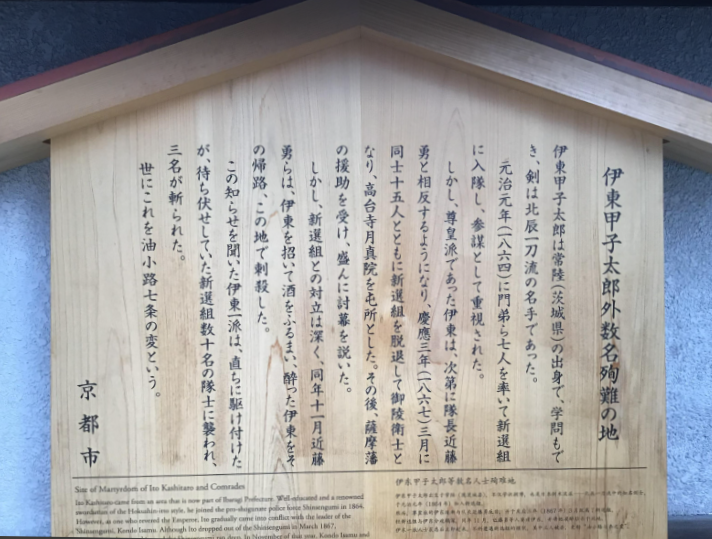 伊東甲子太郎外数名殉難の地
伊東甲子太郎は常陸(茨城県)の出身で、学問もで
き、剣は北辰一刀流の名手であった。
元治元年(一八六四)に門弟ら七人を率いて新選組
に入隊し、参謀として重視された。
しかし、尊皇派であった伊東は、次第に隊長近藤
勇と相反するようになり、慶應三年(一八六七)三月に
同士十五人とともに新選組を脱退して御陵衛士と
なり、高台寺月真院を屯所とした。その後、薩摩藩
の援助を受け、盛んに討幕を説いた。
しかし、新選組との対立は深く、同年十一月近藤
勇らは、伊東を招いて酒をふるまい、酔った伊東をそ
の帰路、この地で刺殺した。
この知らせを聞いた伊東一派は、直ちに駆け付けた
が、待ち伏せしていた新選組数十名の隊士に襲われ、
三名が斬られた。
世にこれを油小路七条の変という。
京都市
Site of Martyrdom of Ito Kashitaro and Comrades
Ito Kashitaro came from an area that is now part of Ibaragi Prefecture. Well-educated and a renowned
swordsman of the Hokushin-itto style, he joined the pro-shogunate police force Shinsengumi in 1864.
However, as one who revered the Emperor, Ito gradually came into conflict with the leader of the
Shinsengumi, Kondo Isamu. Although Ito dropped out of the Shinsengumi in March 1867,
伊东甲子太郎等数名人士殉难地